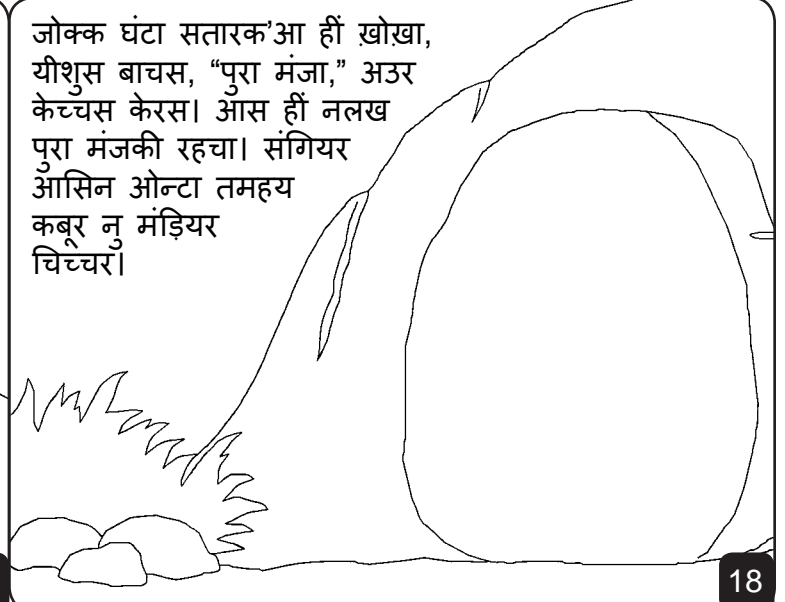 जोक्क घंटा सतारक'आ हीं ख़ोख़ा,
यीशुस बाचस, “पुरा मंजा,” अउर
केच्चस केरस। आस हीं नलख
पुरा मंजकी रहचा। संगियर
आसिन ओन्टा तमहय
कबूर नु मंड़ियर
चिच्चर।
18